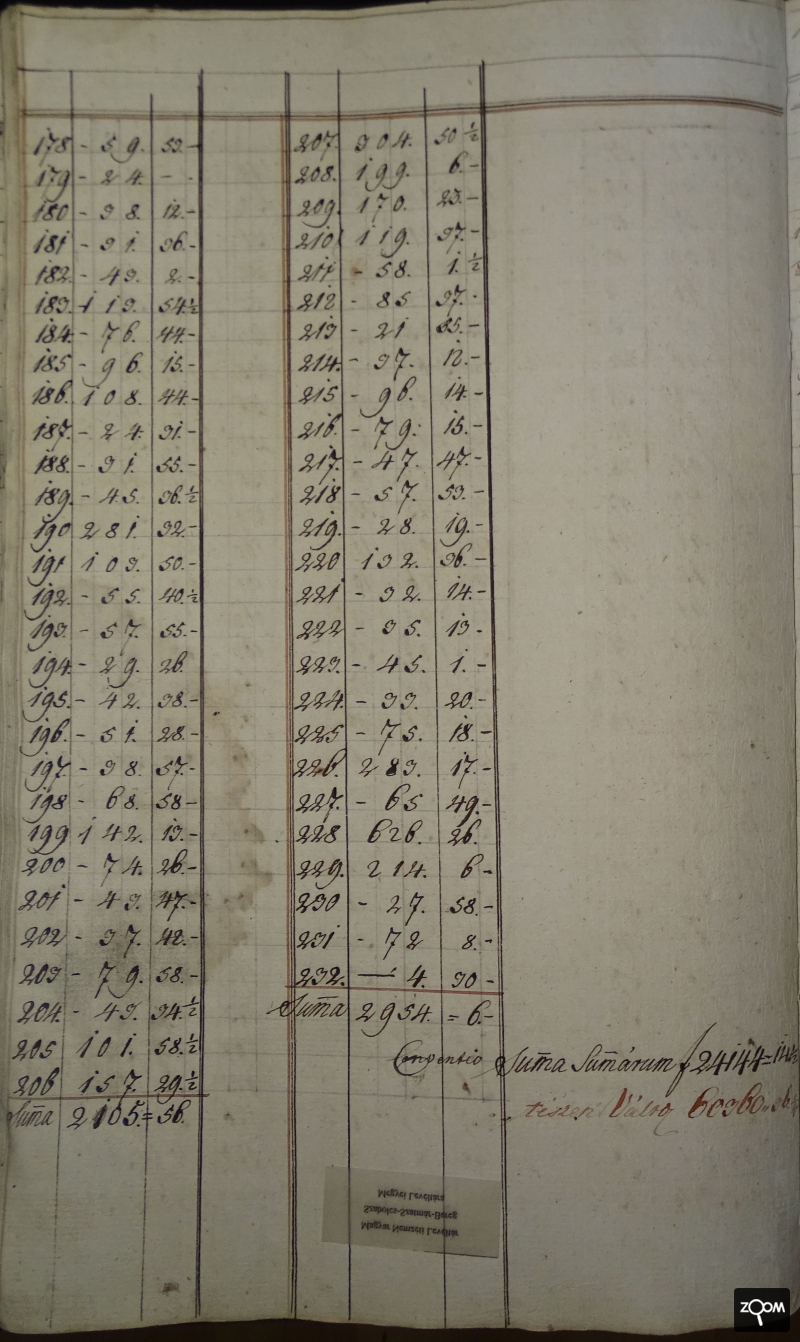 178 - 59. 53.-
179 - 24. - -
180 - 38. 12.-
181 - 31. 36.-
182. - 43. 2.-
183. 113. 54½
184. - 76. 44.-
185 - 96. 15.-
186. 108. 44.-
187. - 24. 31.-
188. - 31. 55.-
189. - 45. 36.½
190 281. 32-
191 103. 50.-
192. - 55. 40.½
193. - 57. 55.-
194. - 29. 26
195. - 42. 38.-
196. - 51. 28.-
197. - 38. 57.-
198 - 68. 58-
199 142. 13.-
200 - 74. 26.-
201 - 43. 47.-
202 - 37. 42.-
203 - 79. 58.-
204. - 43. 34.½
205 101. 58.½
206 157. 29.½
Sum̄a 2105.=56.
207. 304. 50½
208. 199. 6.-
209. 170. 23.-
210 119. 37.-
211 - 58. 1.½
212 - 85 37.-
213 - 21 35.-
214. - 37. 12.-
215 - 96. 14-
216. - 79. 15.-
217. - 47. 47.-
218 - 57. 53.-
219. - 28. 19.-
220 132. 36.-
221 - 32. 14.-
222 - 35. 13-
223. - 45. 1.-
224. - 33. 20.-
225 - 75. 18.-
226. 283. 17.-
227. - 65 49.-
228 626. 26.
229. 214. 6-
230 - 27. 58.-
231 - 72 8.-
232. - 4. 30-
Sum̄a 2954. = 6.-
Sum̄a Sum̄árum f 24144=
60360
Magyar Nemzeti Levéltár
Szabolcs-Szatmár-Bereg
Megyei Levéltára
ZOOM